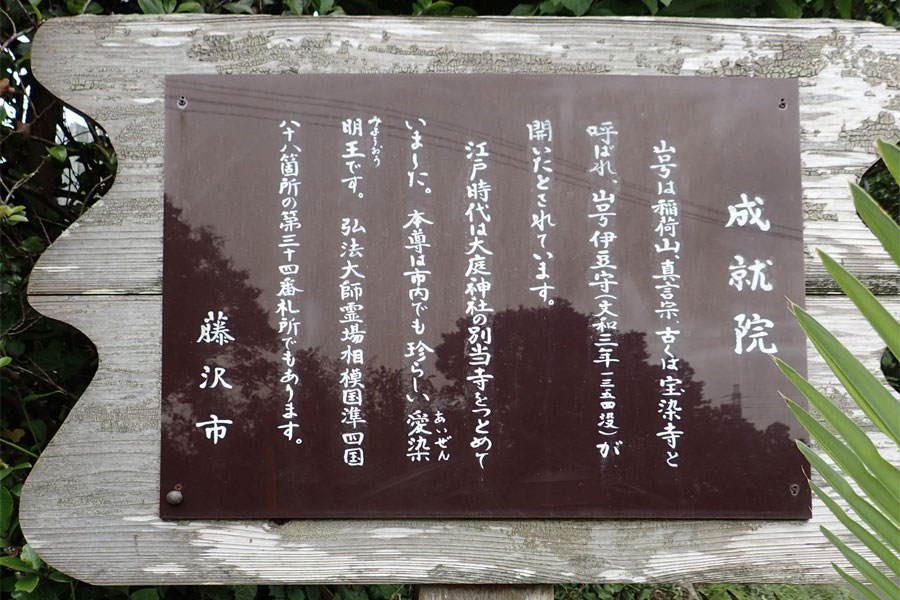 成就院
山号は稲荷山、真言宗 古くは宝染寺と
呼ばれ、山号伊豆守(文和三年一三五四没)が
開いたとされています。
江戸時代は大庭神社の別当寺をつとめて
いました。本尊は市内でも珍らしい愛染
あいぜん
明王です。弘法大師霊場相模国準四国
みょうおう
八十八箇所の第三十四番札所でもあります。
藤沢市